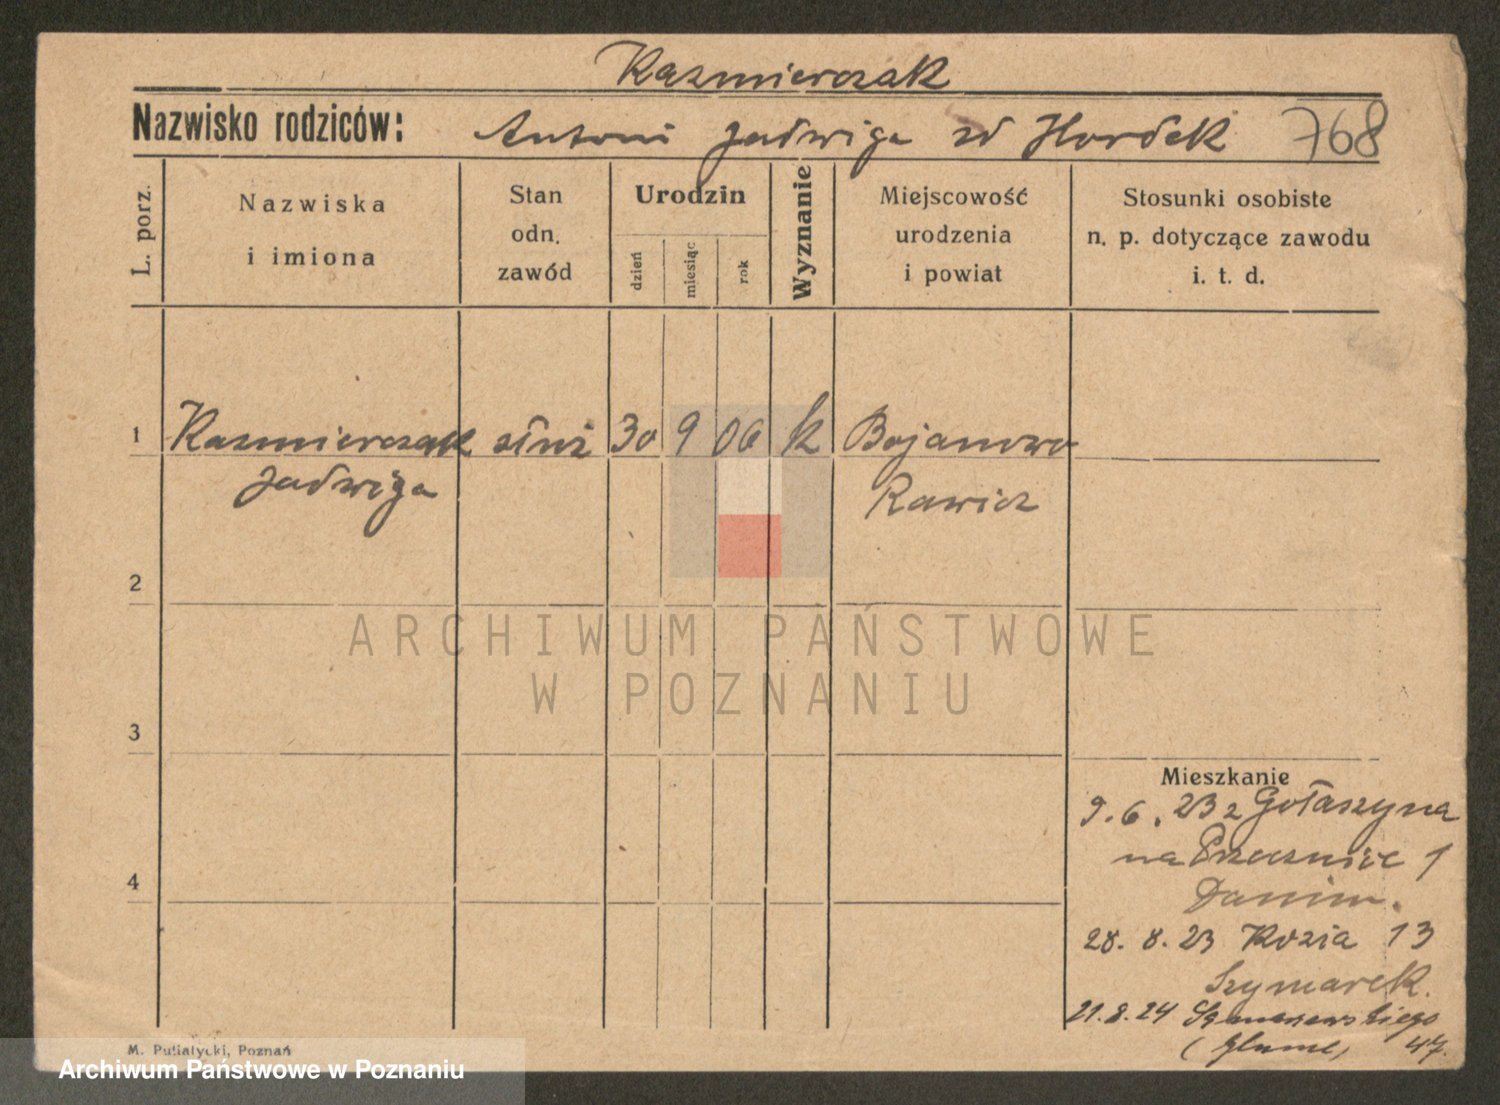 Kazmierczak
Nazwisko rodziców: Antoni Jadwiga zd Hordek 768
L. porz.
Nazwiska
i imiona
Stan
odn.
zawód
Urodzin
dzień
miesiąc
rok
Wyznanie
Miejscowość
urodzenia
i powiat
Stosunki osobiste
n. p. dotyczące zawodu
i. t. d.
1 Kazmierczak służ 30 9 06 k Bojanowo
Jadwiga Rawicz
2
ARCHIWUM PAŃSTWOWE
W POZNANIU
3
Mieszkanie
9.6.23 z Gołaszyna
na 1
4
28.8.23 Kozia 13
Szymarek.
21.8.24
47.
M. Putiatycki, Poznań
Archiwum Państwowe w Poznaniu